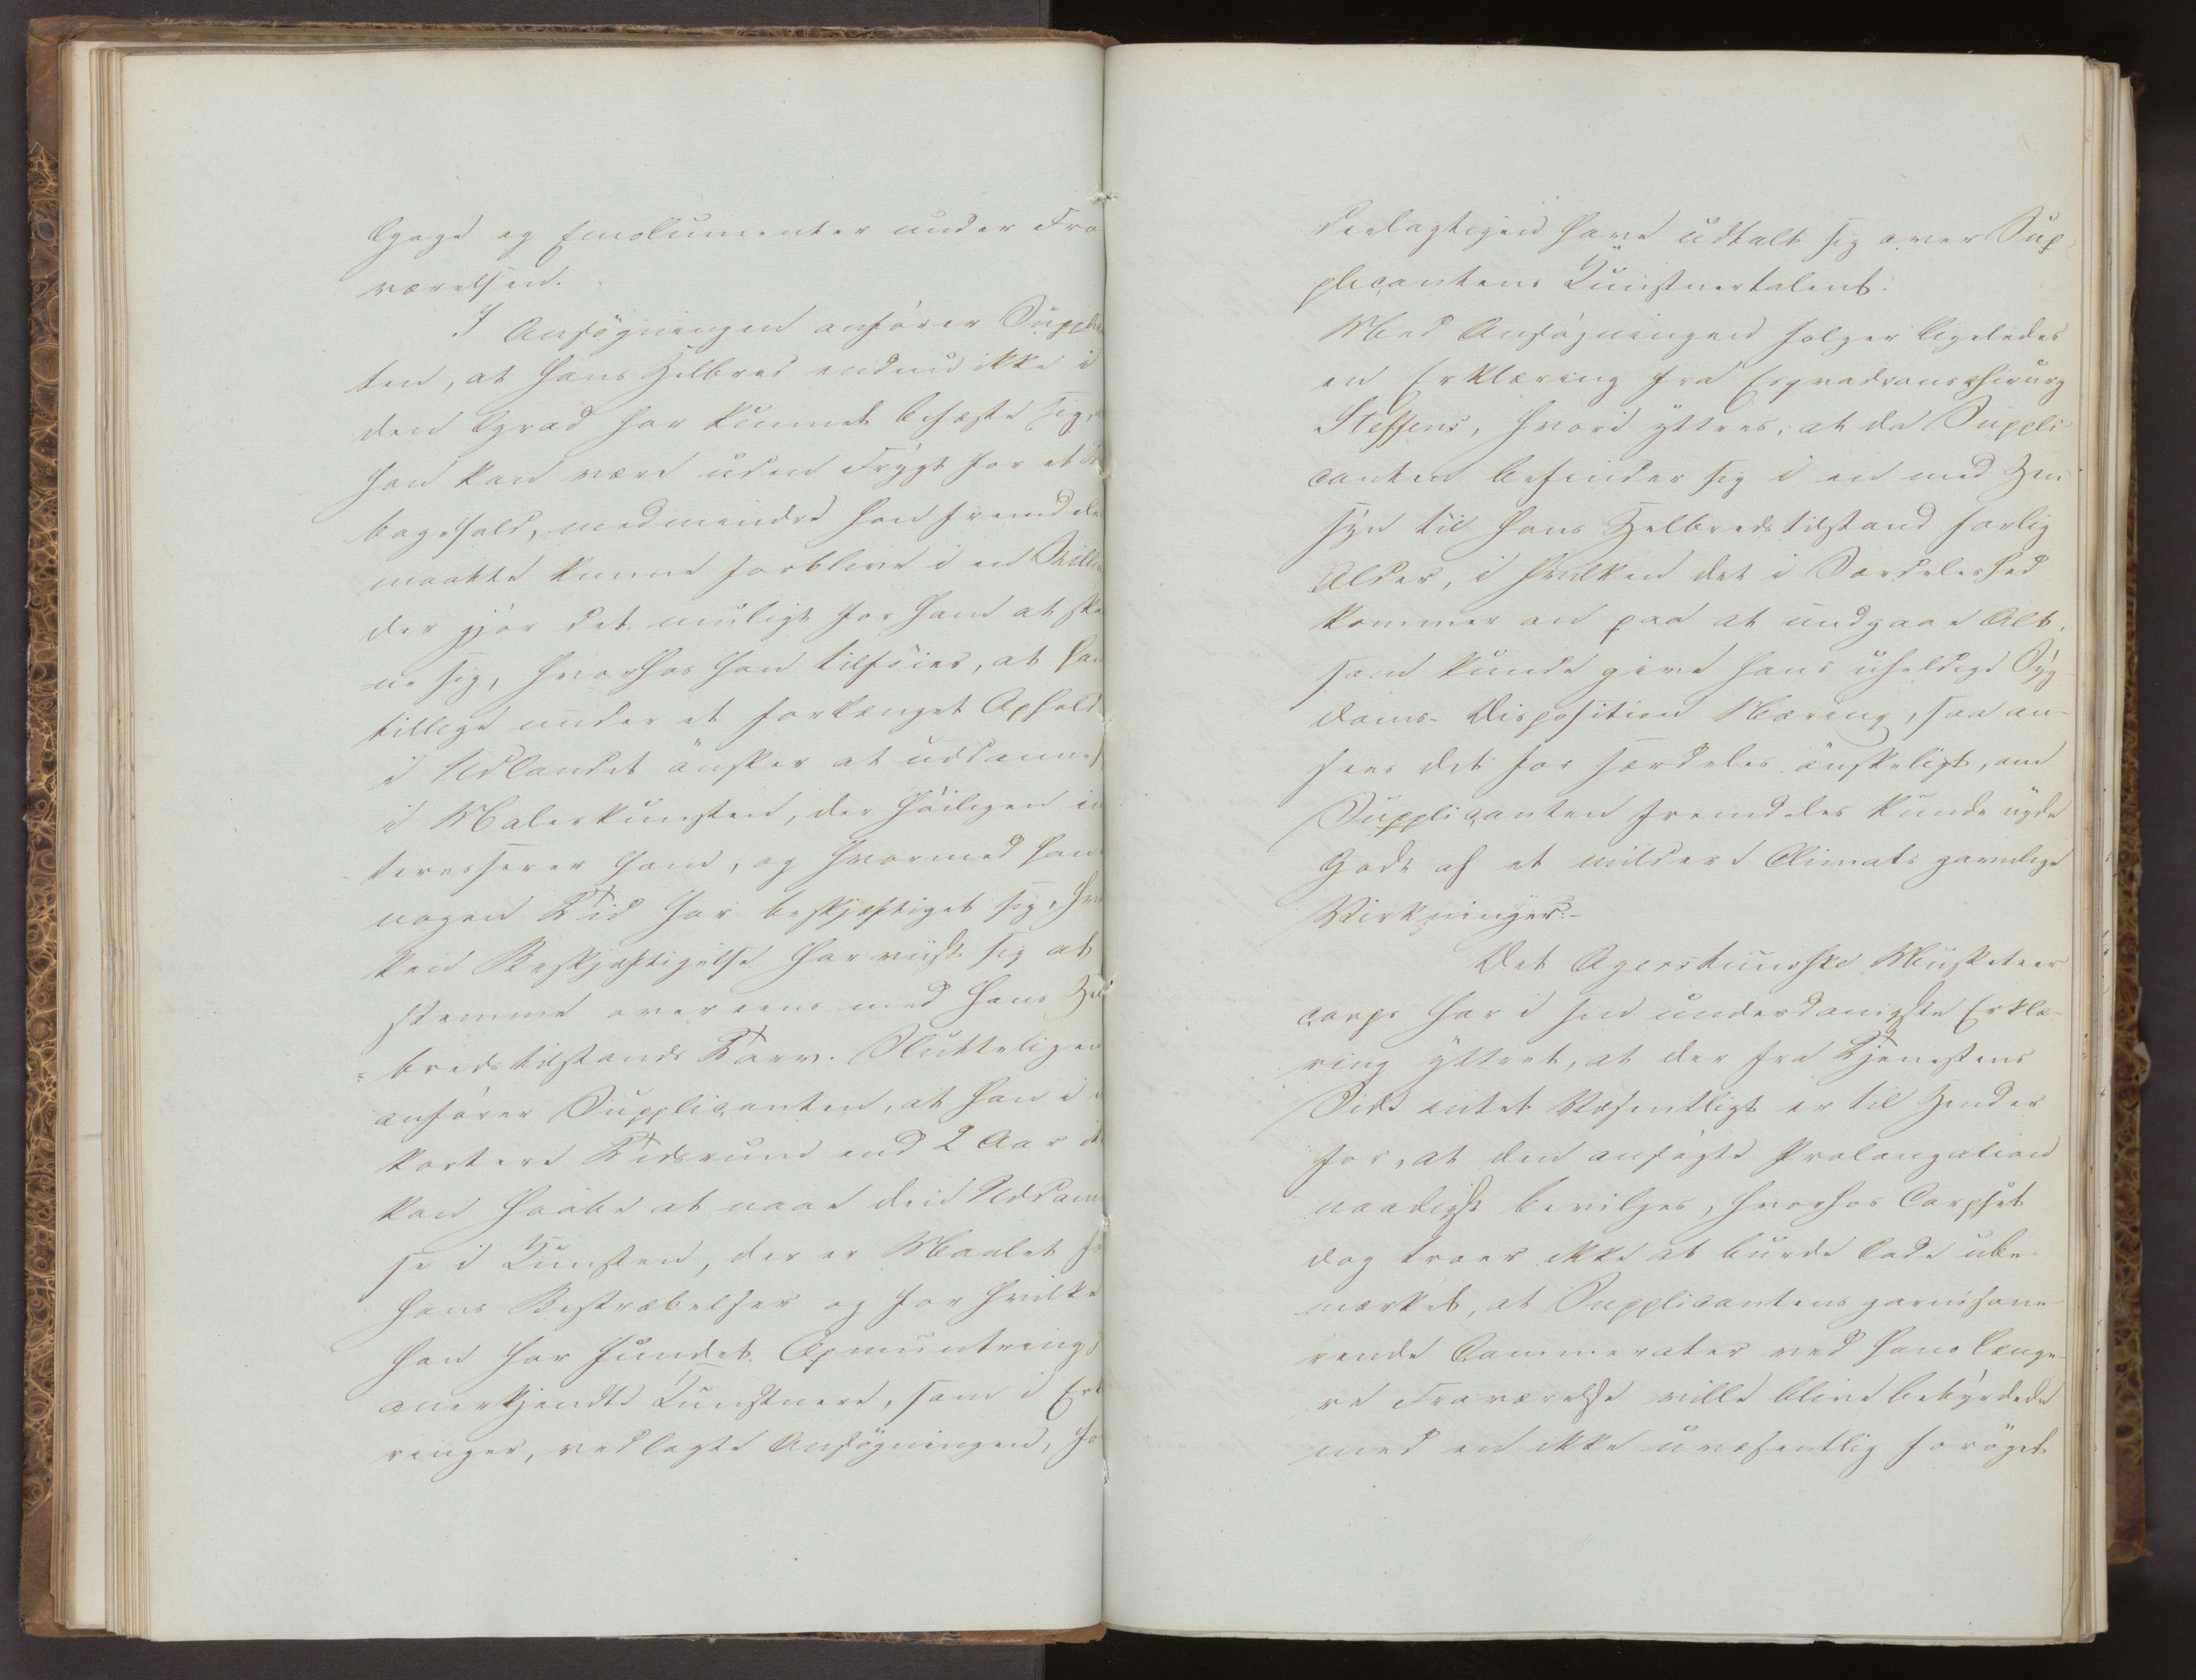 Gage og Emolumenter under Fra
værelsen.
I Ansøgningen anfører Supplik
ten, at hans Helbred endnu ikke i
den Grad har kunnet befæste sig,
han kan være uden Frygt for et
bagefald, medmindre han fremdel
maatte kunne forblive i en Stilli
der gjør det muligt for ham at ska
ne sig, hvorhos han tilføier, at han
tillige under et forlænget Ophold
i Udlandet ønsker at uddannes
i Malerkunsten, der høiligen in
teresserer ham, og hvormed han
nogen Tid har beskjæftiget sig, hvi
ken Beskjæftigelse har viist sig at
stemme overeens med hans Hel
bredstilstands Tarv. Slutteligen
anfører Supplicanten, at han i
kortere Tidsrum end 2 Aar ik
kan haabe at naae den Uddann
se i Kunsten, der er Maalet fo
hans Bestræbelser og for hvilke
han har fundet Opmuntring
anerkjendte Kunstnere, som i Erk
ringer, vedlagte Ansøgningen, ho
deelagtigen have udtalt sig over Sup
plicantens Kunstnertalent.
Med Ansøgningen følger ligeledes
en Erklæring fra Esqvadronschirurg
Steffens, hvori yttres, at da Suppli
canten befinder sig i en med Hen
syn til hans Helbredstilstand farlig
Alder, i hvilken det i Særdeleshed
kommer an paa at undgaae Alt,
som kunde give hans uheldige Syg
doms-Disposition Næring, saa an-
sees det for særdeles ønskeligt, om
Supplicanten fremdeles kunde nyde
Godt af et mildere Climats gavnlige
Virkninger.-
Det Agerskuuske Musketeer
corps har i sin underdanigste Erklæ-
ring yttret, at der fra Tjenestens
Side intet Væsentligt er til Hinder
for, at den ansøgte Prolongation
naadigst bevilges, hvorhos Corpset
dog troer ikke at burde lade ube
mærket, at Supplicantens garnisone
rende Cammerater ved hans længe-
re Fraværelse ville blive bebyrdede
med en ikke uvæsentlig forøget